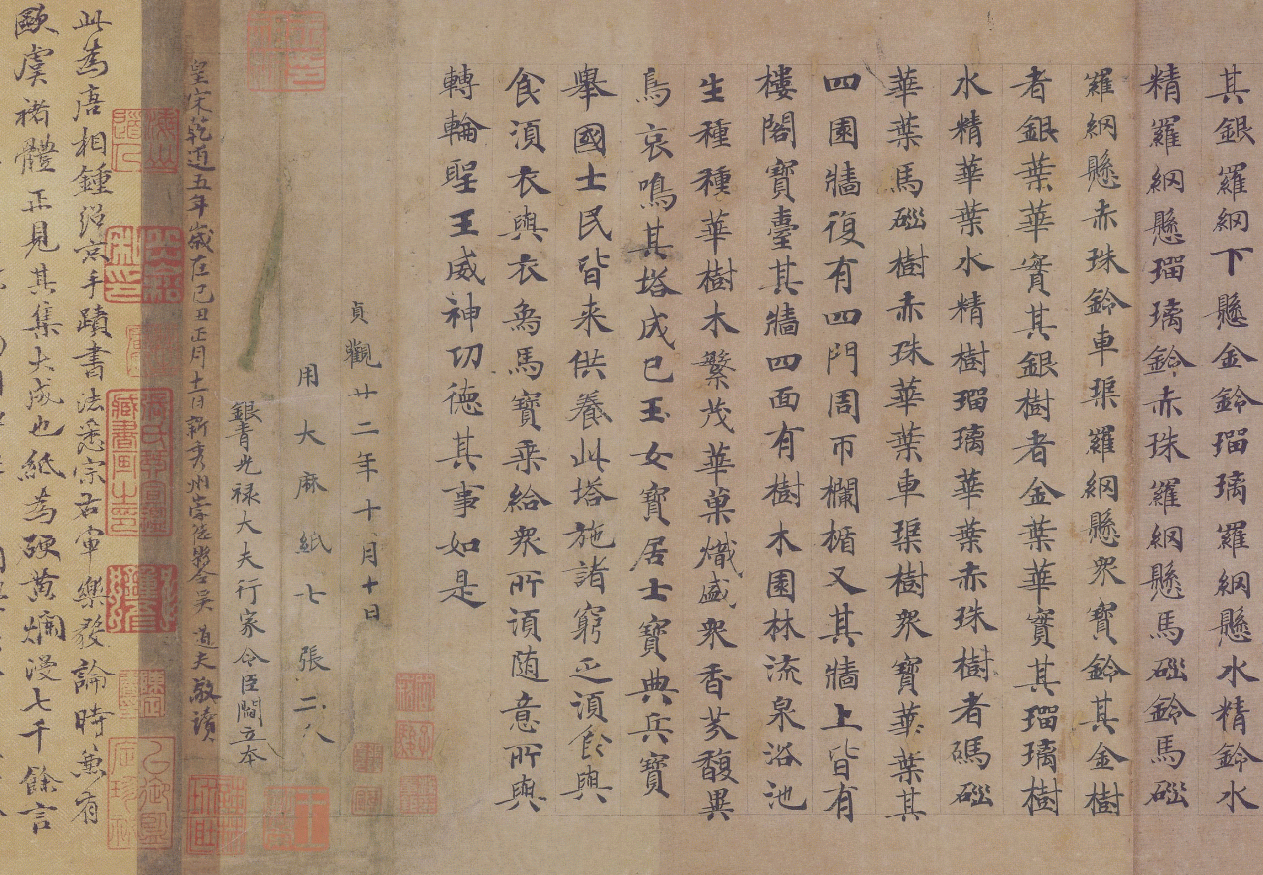 其銀羅網下懸金鈴瑠璃羅網懸水精鈴水
精羅網懸瑠璃鈴赤珠羅網懸馬碯鈴馬碯
羅網懸赤珠鈴車𤦲羅網懸衆寶鈴其金樹
者銀葉華實其銀樹者金葉華寶其瑠璃樹
水精華葉水精樹瑠璃華葉赤珠樹者碼碯
華葉馬碯樹赤珠華葉車𤦲樹衆寶華葉其
四園牆復有四門周帀欄楯又其牆上皆有
樓閣寶臺其牆四面有樹木園林流泉浴池
生種種華樹木繁茂華菓熾盛衆香芬馥異
鳥哀鳴其塔成已玉女寶居士寶典兵寶
舉國士民皆来供養此塔施諸窮乏湏食與
食湏衣與衣象馬寶乗給衆所湏随意所與
轉輪聖王威神功德其事如是
貞觀廿二年十月十日
用大麻紙七張二分
銀青光禄大夫行家令臣閻立本
皇宋乾道五年歲在己丑正月十一日新秀州崇德縣令吴道夫敬讀
此為唐相鍾紹京手蹟書法悉宗右軍樂毅論時兼有
歐虞褚體正見其集大成也紙為硬黃爛漫七千餘言